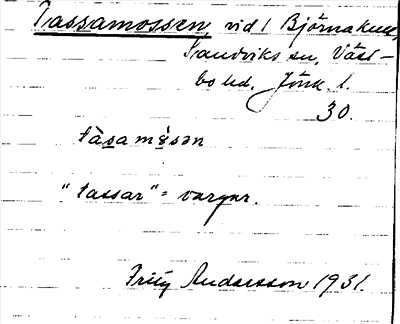 Tassamossen, vid 1 Björnakull,
Sandviks sn, Väst-
bo hd. Jönk. l.
30.
tàsamòsən
"tassar" = vargar.
Fritz Andersson 1931.